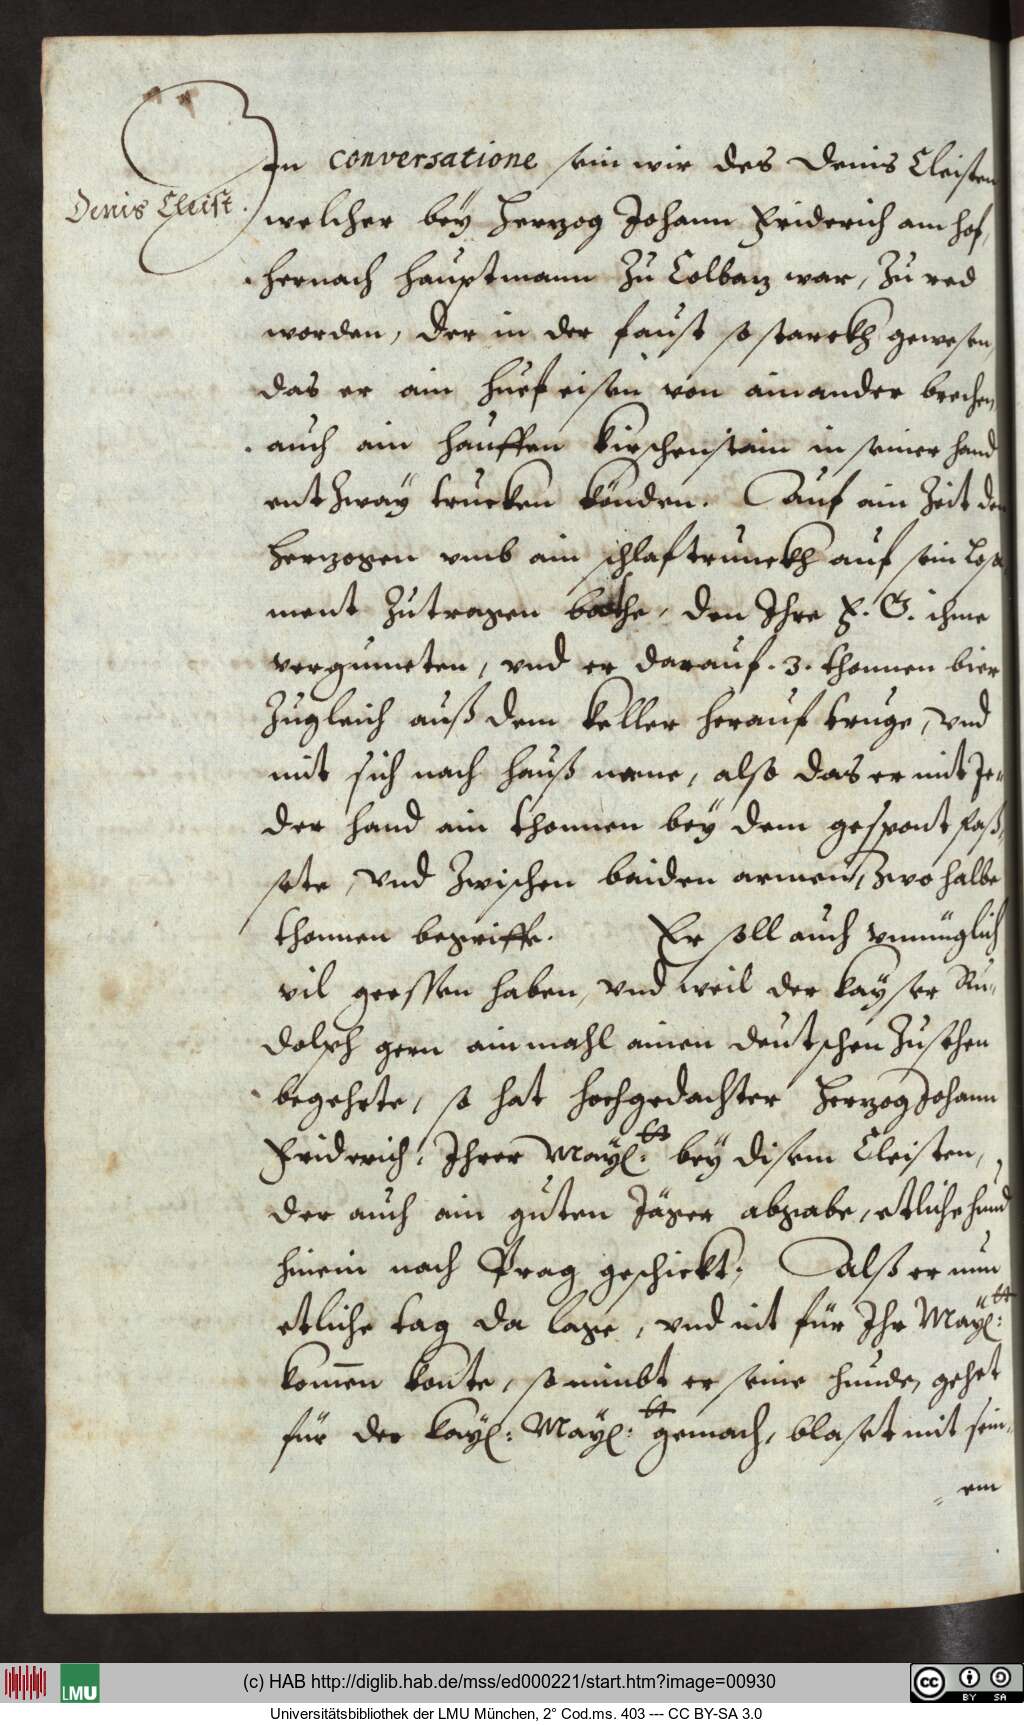 In conversatione sein wir des Denis Cleisten
Denis Cleist.
welcher bey Herzog Johann Friderich am hof,
hernach hauptmann zu Colbaz war, zu red
worden, der in der faust so starckh gewesen,
das er ain huef eisen von ainander brechen,
auch ain hauffen kirschenstain in seiner hand
entzway trucken könden. Auf ain Zeit den
Herzogen vmb ain schlaftrunckh auf sein Losa
ment zutragen bathe, den Ihre F. G. ihme
vergunneten, vnd er darauf .3. thonnen bier
zugleich auß dem keller herauf truge, vnd
mit sich nach hauß neme, also das er mit Je-
der hand ain thonnen bey dem gespont faß,
sete, vnd zwischen baiden armen, zwo halbe
thonnen begriffe. Er soll auch vnmüglich
vil geessen haben, vnd weil der Kayser Ru-
dolph gern ainmahl ainen deutschen zusehen
begehrte, so hat hochgedachter Herzog Johann
Friderich, Ihrer Mayl: tt bey disem Cleisten,
der auch ain guten Jäger abgabe, etliche hund
hinein nach Prag geschickt; Alß er nun
etliche tag da lage, vnd nit für Ihr Mayl: tt
kom̄en konte, so nimbt er seine hunde, gehet
für der Kayl: Mayl: tt gemach, blaset mit sein-
em
(c) HAB http://diglib.hab.de/mss/ed000221/start.htm?image=00930
LMU
cc BY SA
Universitätsbibliothek der LMU München, 2° Cod.ms. 403 --- CC BY-SA 3.0